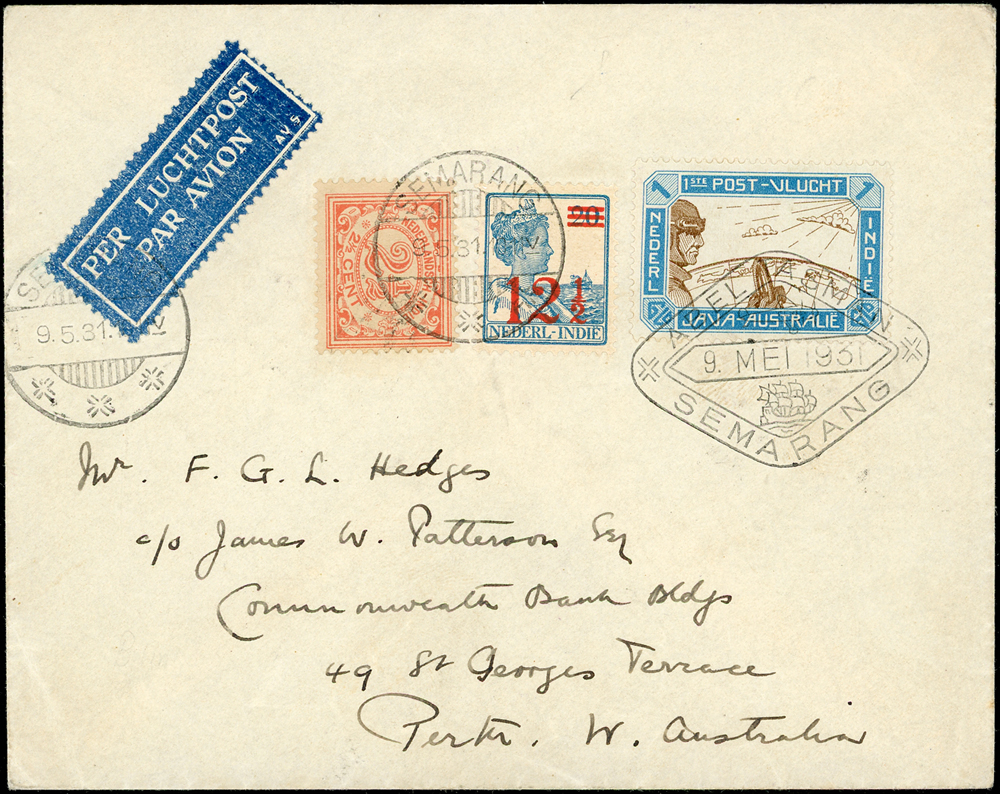 PER LUCHTPOST
PAR AVION
AV 5
9.5.31.
2½ CENT
SEMARANG
9.5.31.
20
12½
NEDERL-INDIE
1 1STE POST-VLUCHT 1
NEDERL
INDIE
JAVA-AUSTRALIË
9. MEI 1931
SEMARANG
Mr. F. G. L. Hedges
c/o James W. Patterson Esq
Commonwealth Bank Bldgs
49 St Georges Terrace
Perth. W. Australia